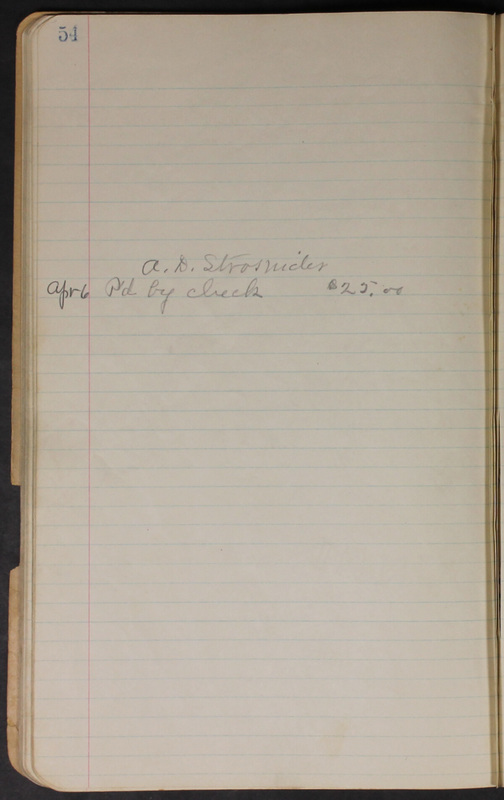 54
A. D. Strosnider
Apr 6 P'd by check $25.00